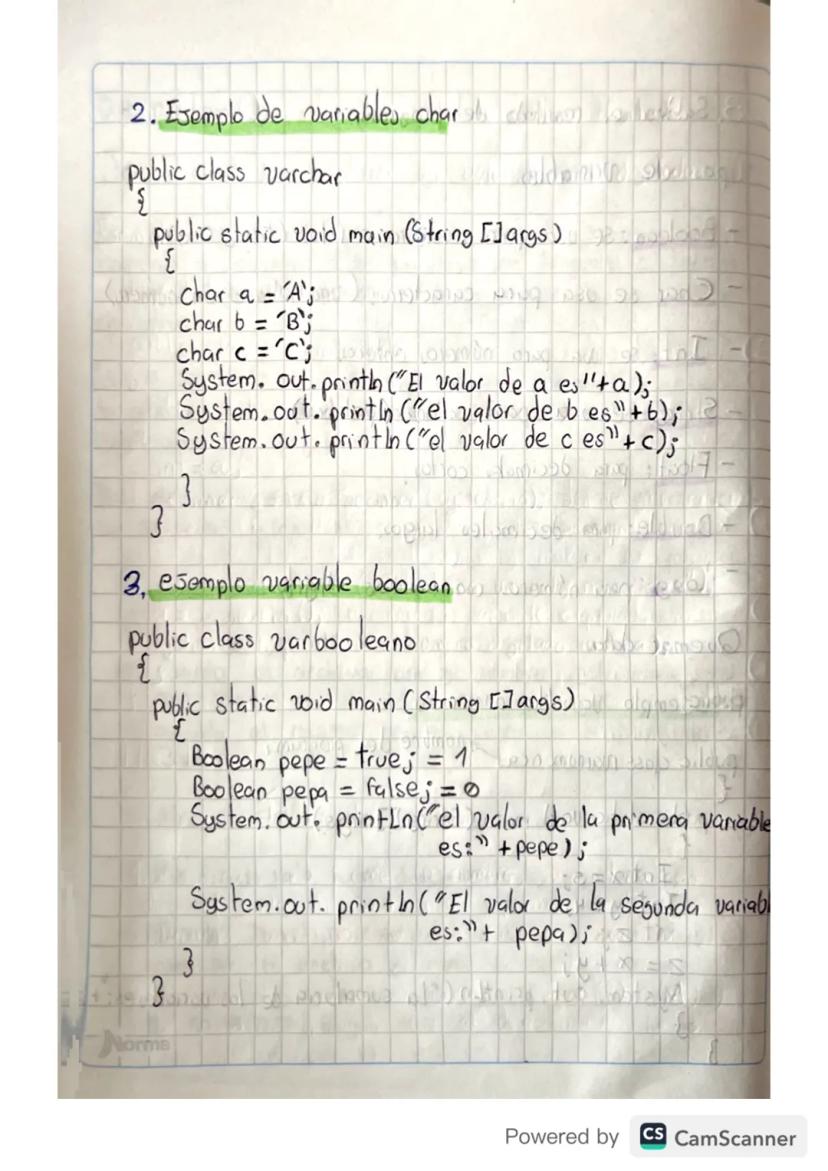 2. Ejemplo de variables char
public class varchar
{
public static void main (String []args)
{
char a = 'A';
char b = 'B';
char c = 'C';
System. out. println ("El valor de a es"+a);
System. out. println ("el valor de b es"+b);
System. out. println ("el valor de c es"+c);
}
}
3. ejemplo variable boolean
public class varbooleano
{
public static void main (String []args)
{
Boolean pepe = true; = 1
Boolean pepa = false; = 0
System. out. printLn("el valor de la primera variable
es:" +pepe);
System.out. println ("El valor de la segunda variabl
es:"+ pepa);
}
}
Norma
Powered by CS CamScanner